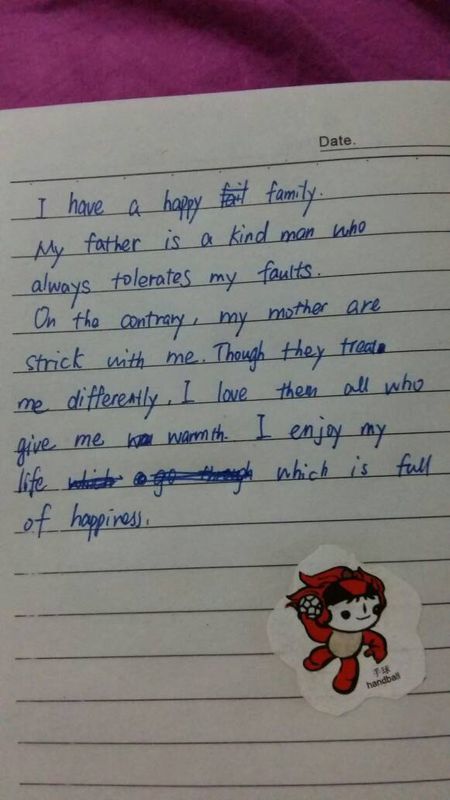 Date.
I have a happy fail family.
My father is a kind man who
always tolerates my faults.
On the contrary, my mother are
strick with me. Though they treat
me differently, I love them all who
give me wa warmth. I enjoy my
life which go through which is full
of happiness.
手球
handball